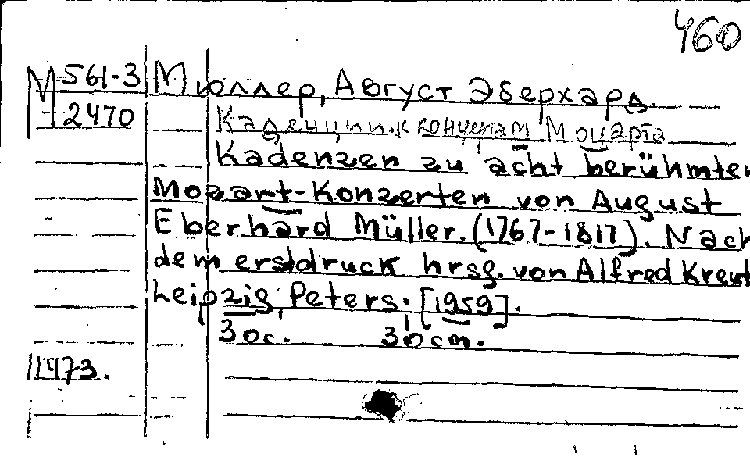 460
М 561-3
2470
Мюллер, Август Эберхард.
Каденции к концертам Моцарта
Kadenzen zu acht berühmten
Mozart-Konzerten von August
Eberhard Müller. (1767-1817). Nach
dem erstdruck hrsg. von Alfred Kreut
Leipzig, Peters. [1959].
30с. 30cm.
11973.